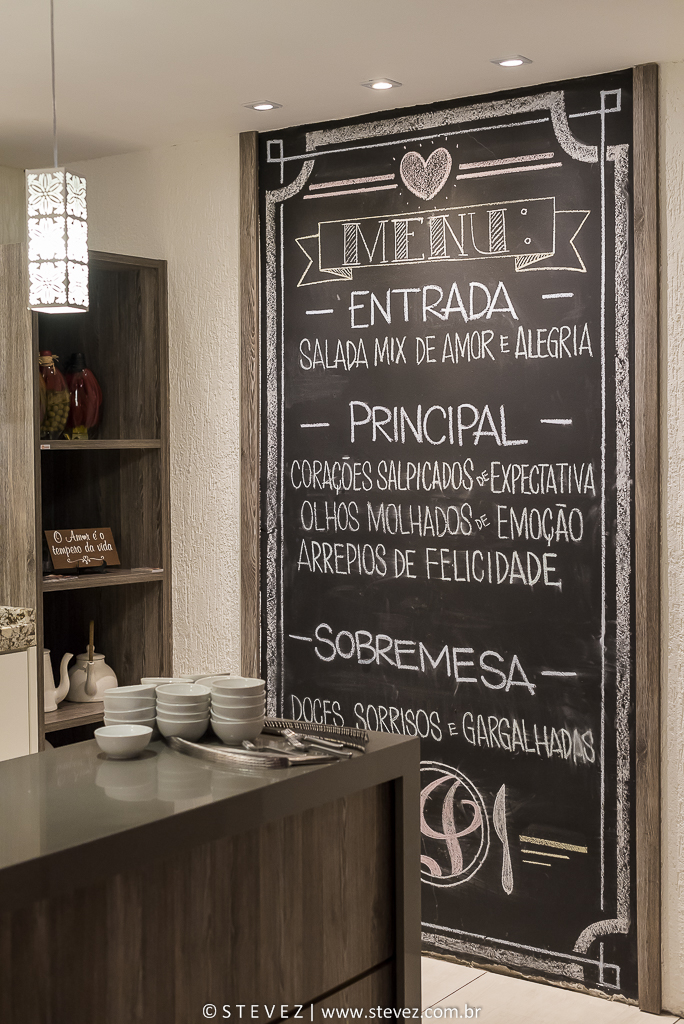 MENU:
ENTRADA
SALADA MIX DE AMOR E ALEGRIA
PRINCIPAL
CORAÇÕES SALPICADOS DE EXPECTATIVA
OLHOS MOLHADOS DE EMOÇÃO
ARREPIOS DE FELICIDADE
SOBREMESA
DOCES SORRISOS E GARGALHADAS
O Amor é o
tempero da vida
© STEVEZ | www.stevez.com.br